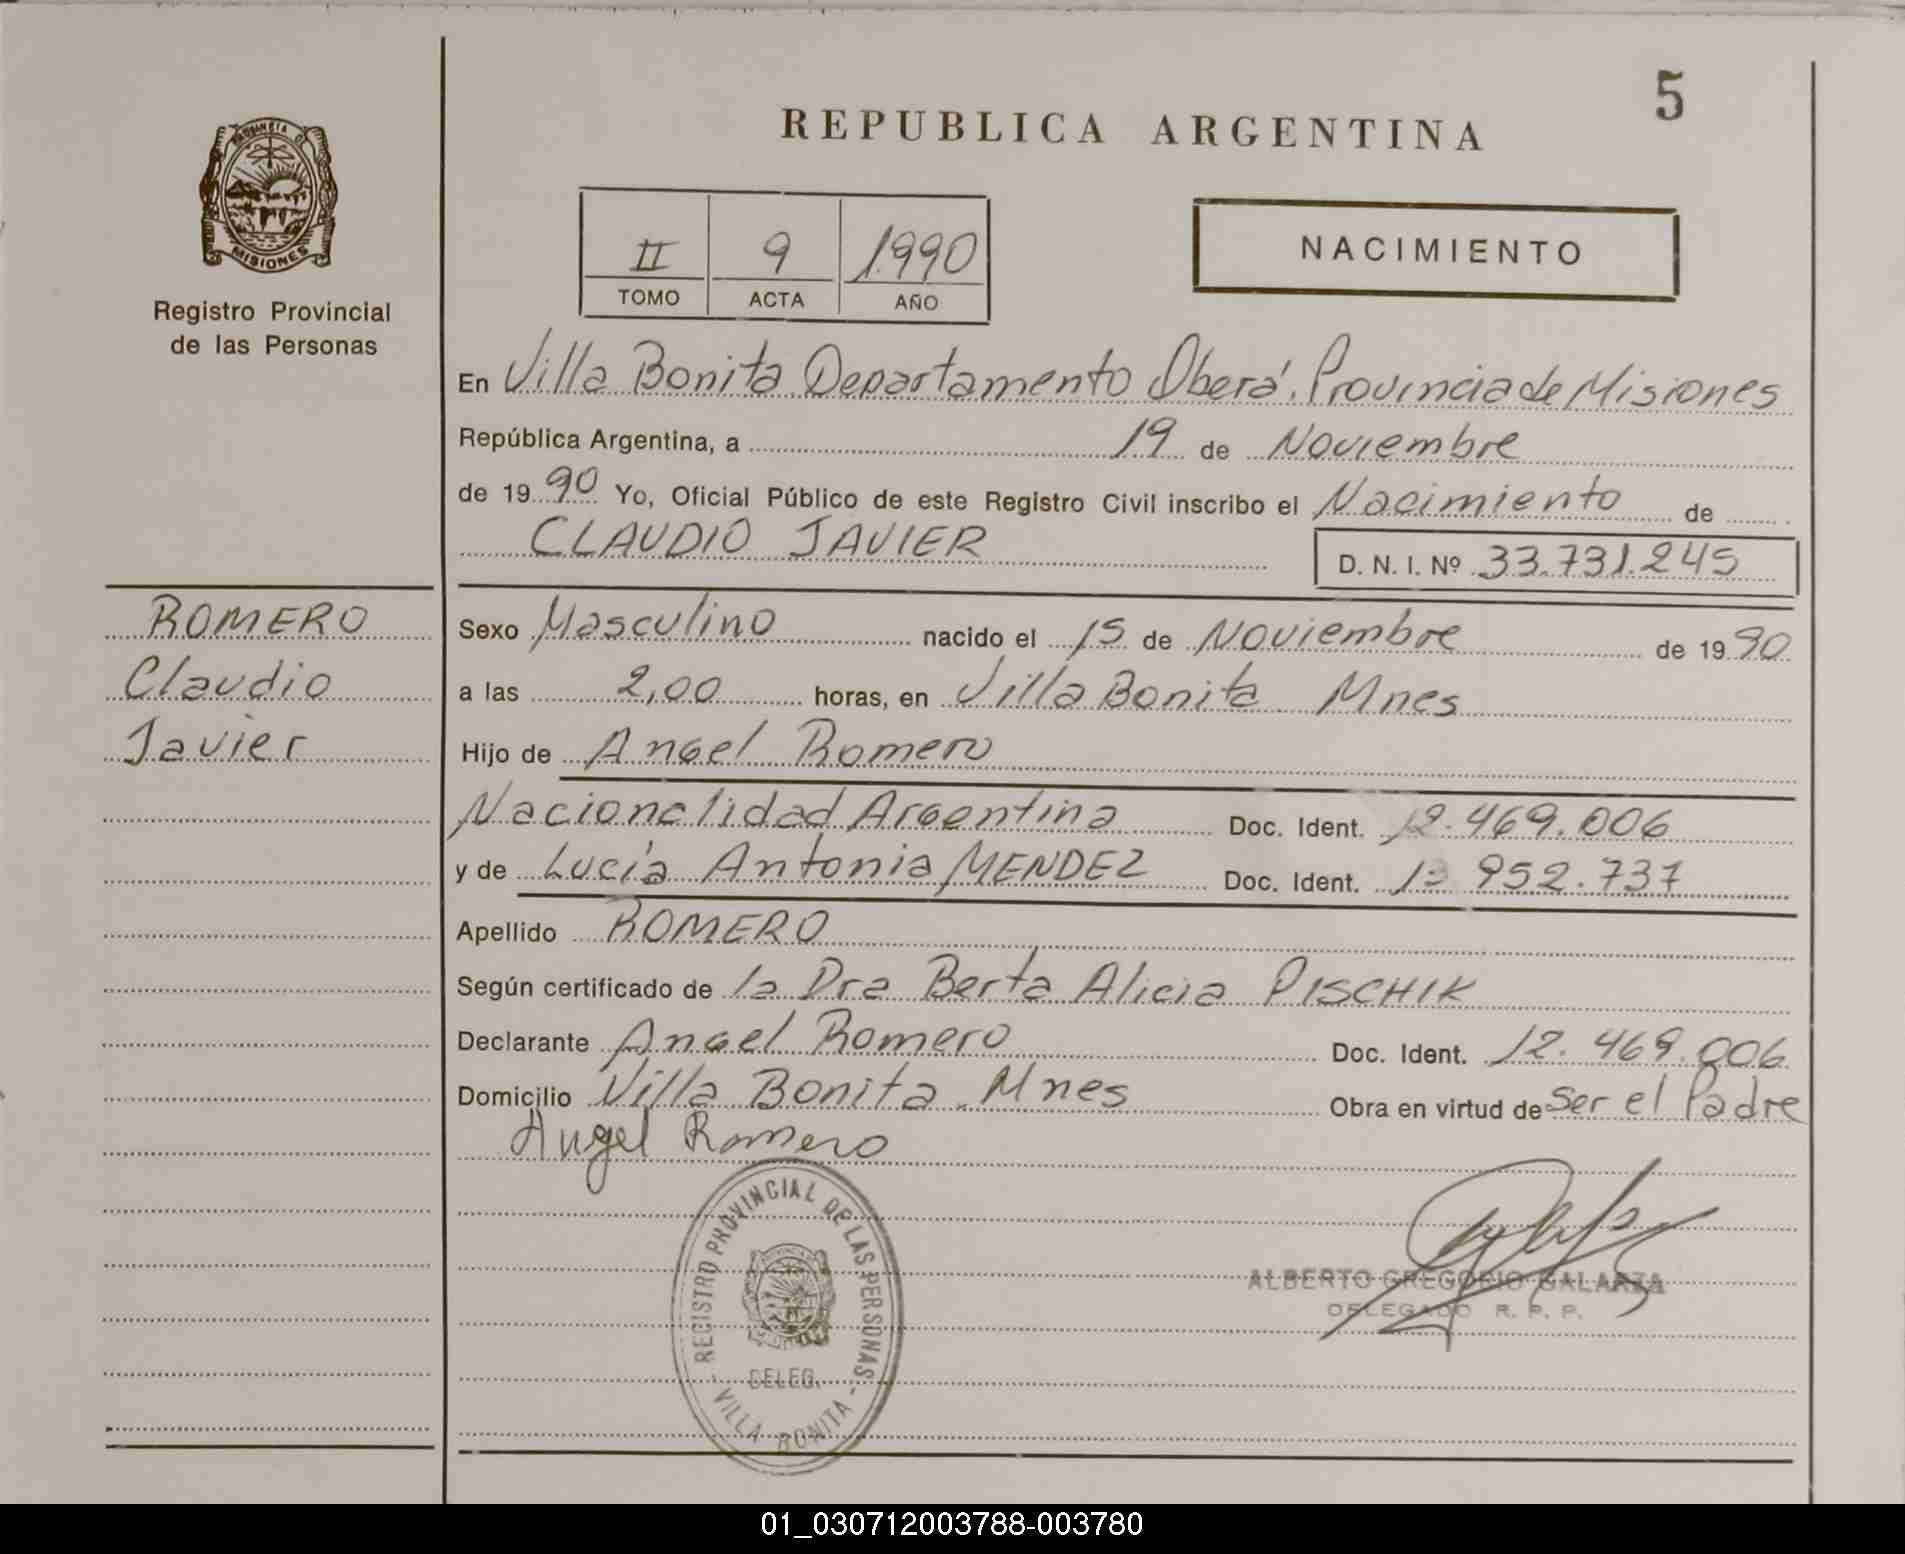 5
REPUBLICA ARGENTINA
PROVINCIA D
MISIONES
Registro Provincial
de las Personas
II 9 1.990
TOMO ACTA AÑO
NACIMIENTO
En Villa Bonita Departamento Oberá, Provincia de Misiones
República Argentina, a 19 de Noviembre
de 1990 Yo, Oficial Público de este Registro Civil inscribo el Nacimiento de
CLAUDIO JAVIER
D. N. I. Nº 33.731.245
ROMERO
Claudio
Javier
Sexo Masculino nacido el 15 de Noviembre de 1990
a las 2,00 horas, en Villa Bonita Mnes
Hijo de Angel Romero
Nacionalidad Argentina Doc. Ident. 12.469.006
y de Lucía Antonia MENDEZ Doc. Ident. 952.737
Apellido ROMERO
Según certificado de la Dra Berta Alicia PISCHIK
Declarante Angel Romero Doc. Ident. 12.469.006
Domicilio Villa Bonita Mnes Obra en virtud de ser el Padre
Angel Romero
REGISTRO PROVINCIAL DE LAS PERSONAS
DELEG.
- VILLA BONITA -
ALBERTO GREGORIO GALARZA
DELEGADO R. P. P.
01_030712003788-003780